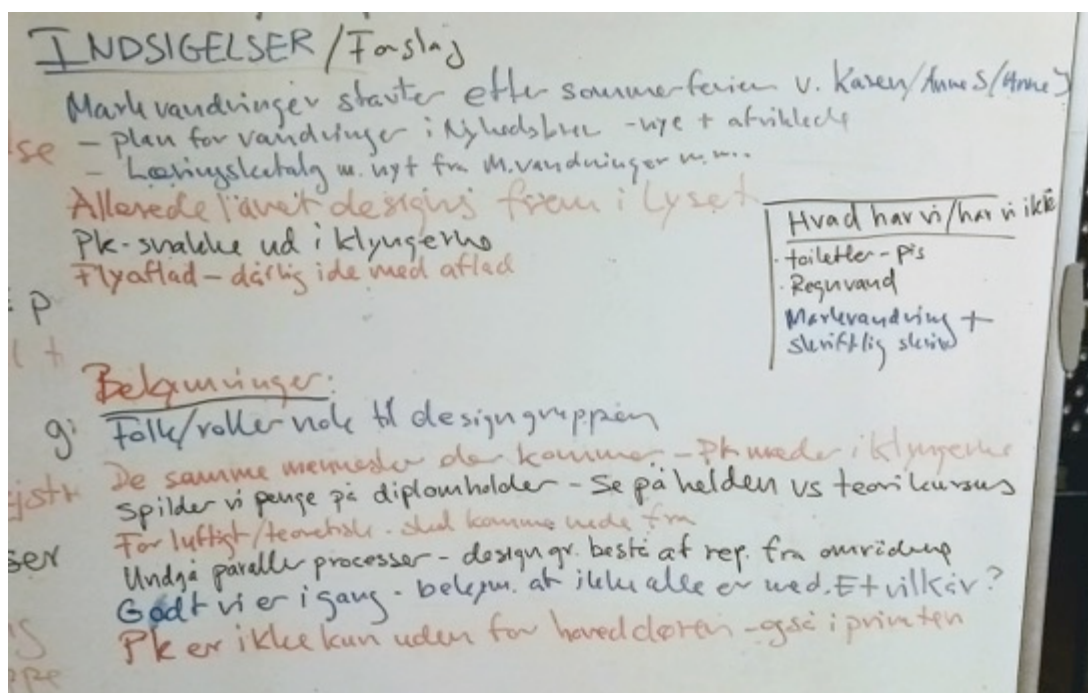 INDSIGELSER/Forslag
Markvandringer starter efter sommerferien v. Karen/Anne S/Anne J
se
- plan for vandringer i Nyhedsbrev - nye + afviklede
- Læringskatalog m. nyt fra M.vandringer m.m..
Allerede lavet designs frem i lyset
Pk-snakke ud i klyngerne
Flyaflad - dårlig ide med aflad
Hvad har vi/har vi ikke
· toiletter - pis
· Regnvand
Markvandring +
skriftlig
P
Bekymringer:
Folk/roller nok til designgruppen
De samme mennesker der kommer - Pk møder i klyngerne
Spilder vi penge på diplomholder - Se på helden vs teorikursus
For luftigt/teoretisk. skal komme nede fra
ser
Undgå paralle processer - design gr. bestå af rep. fra områderne
Godt vi er i gang - bekym. at ikke alle er med. Et vilkår?
Pk er ikke kun uden for hoveddøren - også i privaten